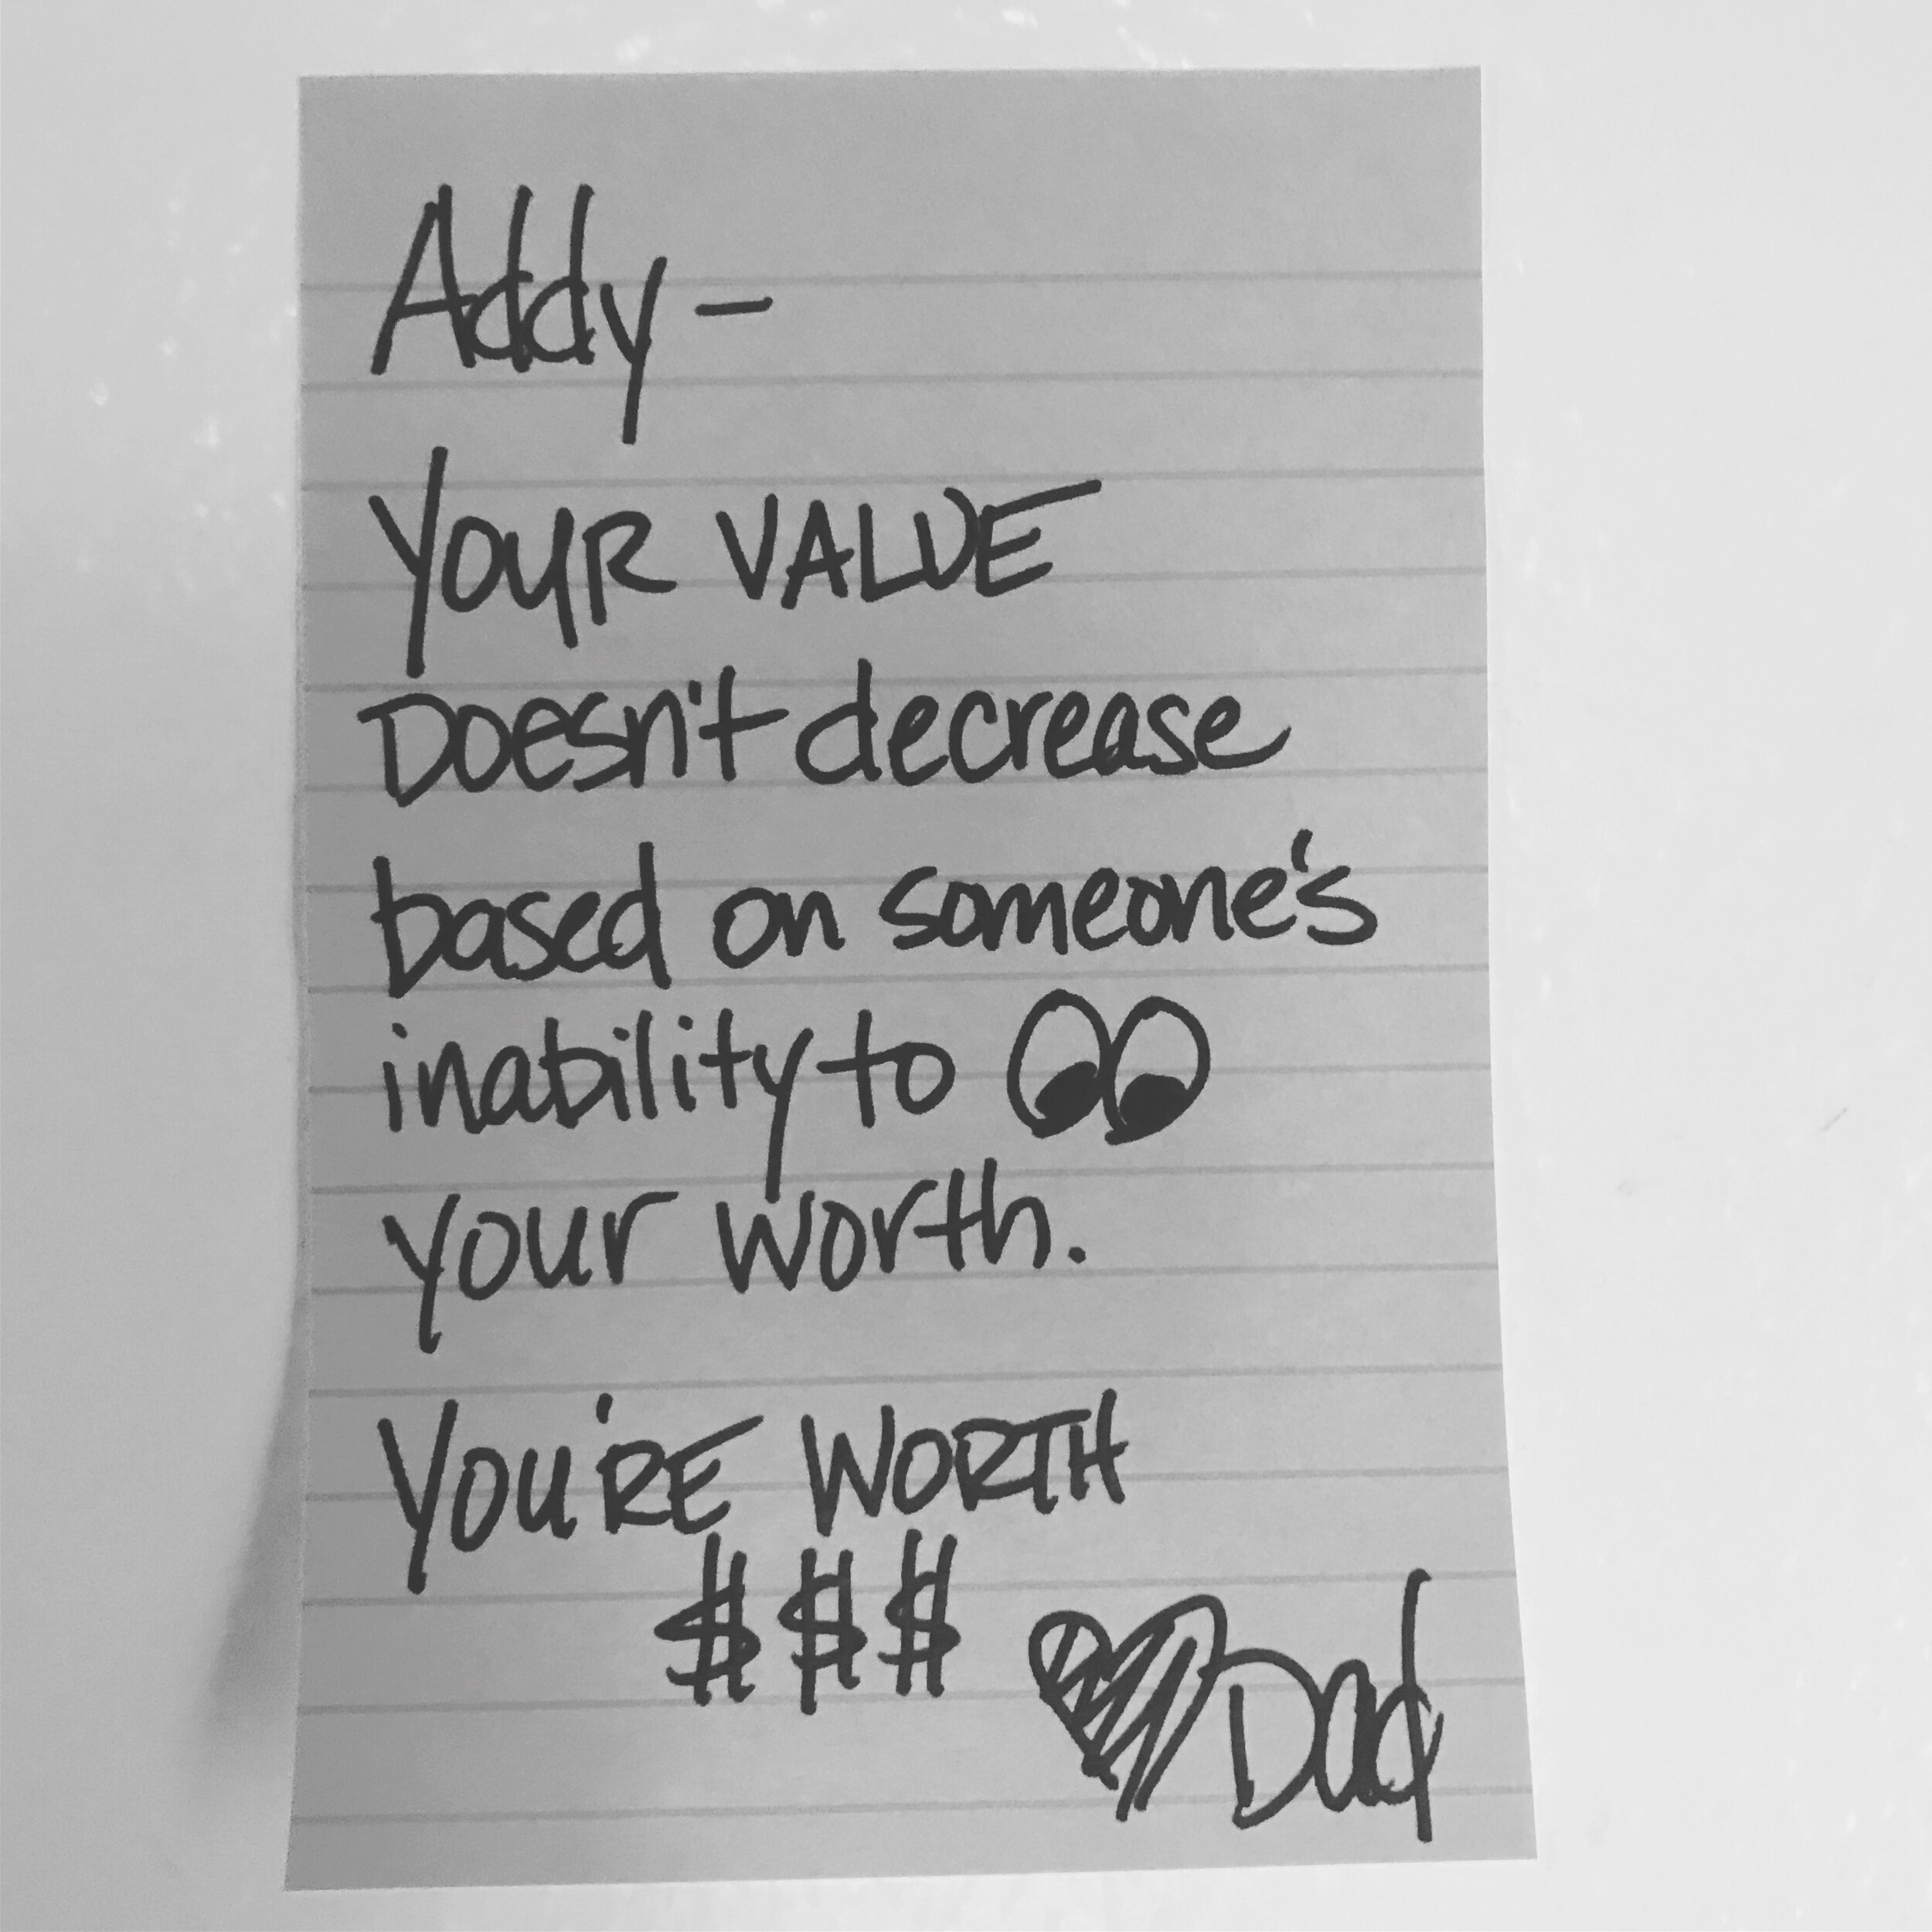 Addy -
YOUR VALUE
Doesn't decrease
based on someone's
inability to 👀
your worth.
YOU'RE WORTH
$$$ ♥ Dad